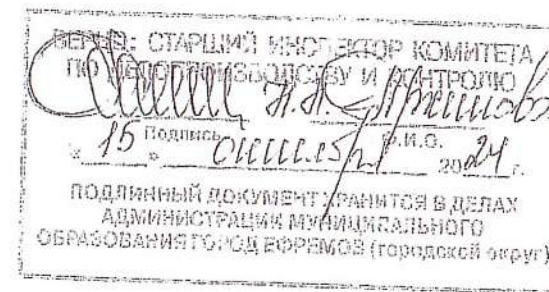 ВЕРНО: СТАРШИЙ ИНСПЕКТОР КОМИТЕТА
ПО ДЕЛОПРОИЗВОДСТВУ И КОНТРОЛЮ
Подпись Ф.И.О.
« 15 » 2024 г.
ПОДЛИННЫЙ ДОКУМЕНТ ХРАНИТСЯ В ДЕЛАХ
АДМИНИСТРАЦИИ МУНИЦИПАЛЬНОГО
ОБРАЗОВАНИЯ ГОРОД ЕФРЕМОВ (городской округ)